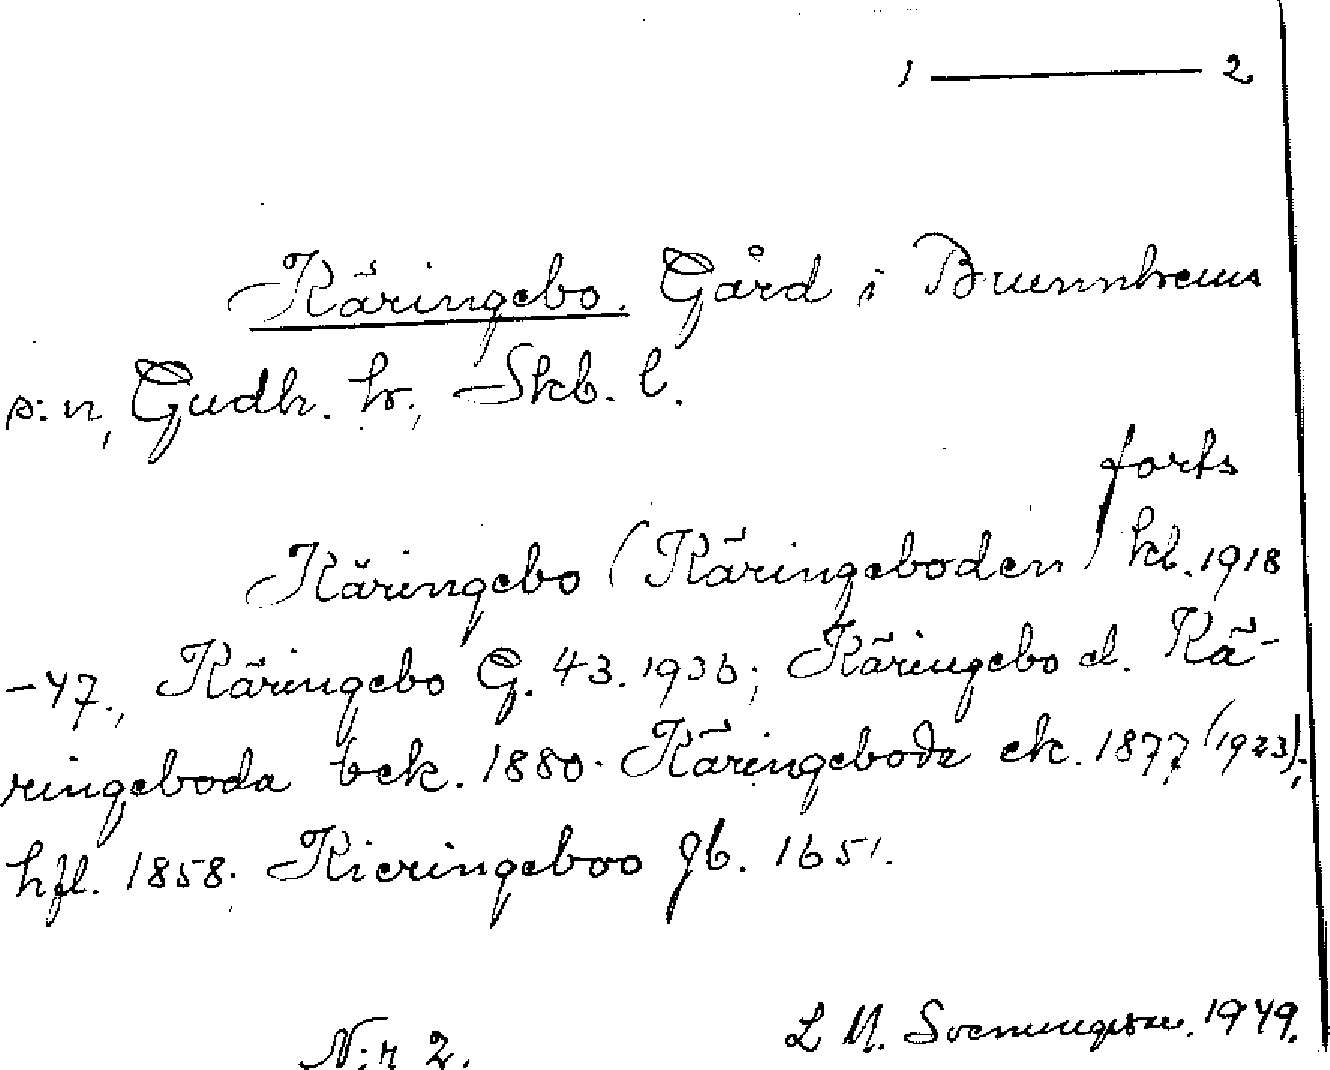 1 — 2
Käringebo. Gård i Brunnhems
s:n, Gudh. hr., Skb. l.
forts
Käringebo (Käringeboden) kb. 1918
-47., Käringebo G. 43. 1936; Käringebo el. Kä-
ringeboda bek. 1880. Käringeboda ek. 1877 (1923);
hfl. 1858. Kieringeboo Jb. 1651.
N:r 2. L M. Svenungsson. 1949.